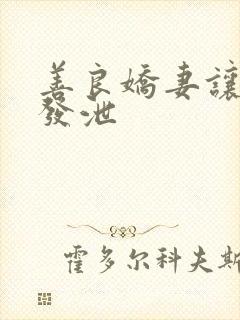 善良嬌妻讓
發泄
霍多尔科夫斯